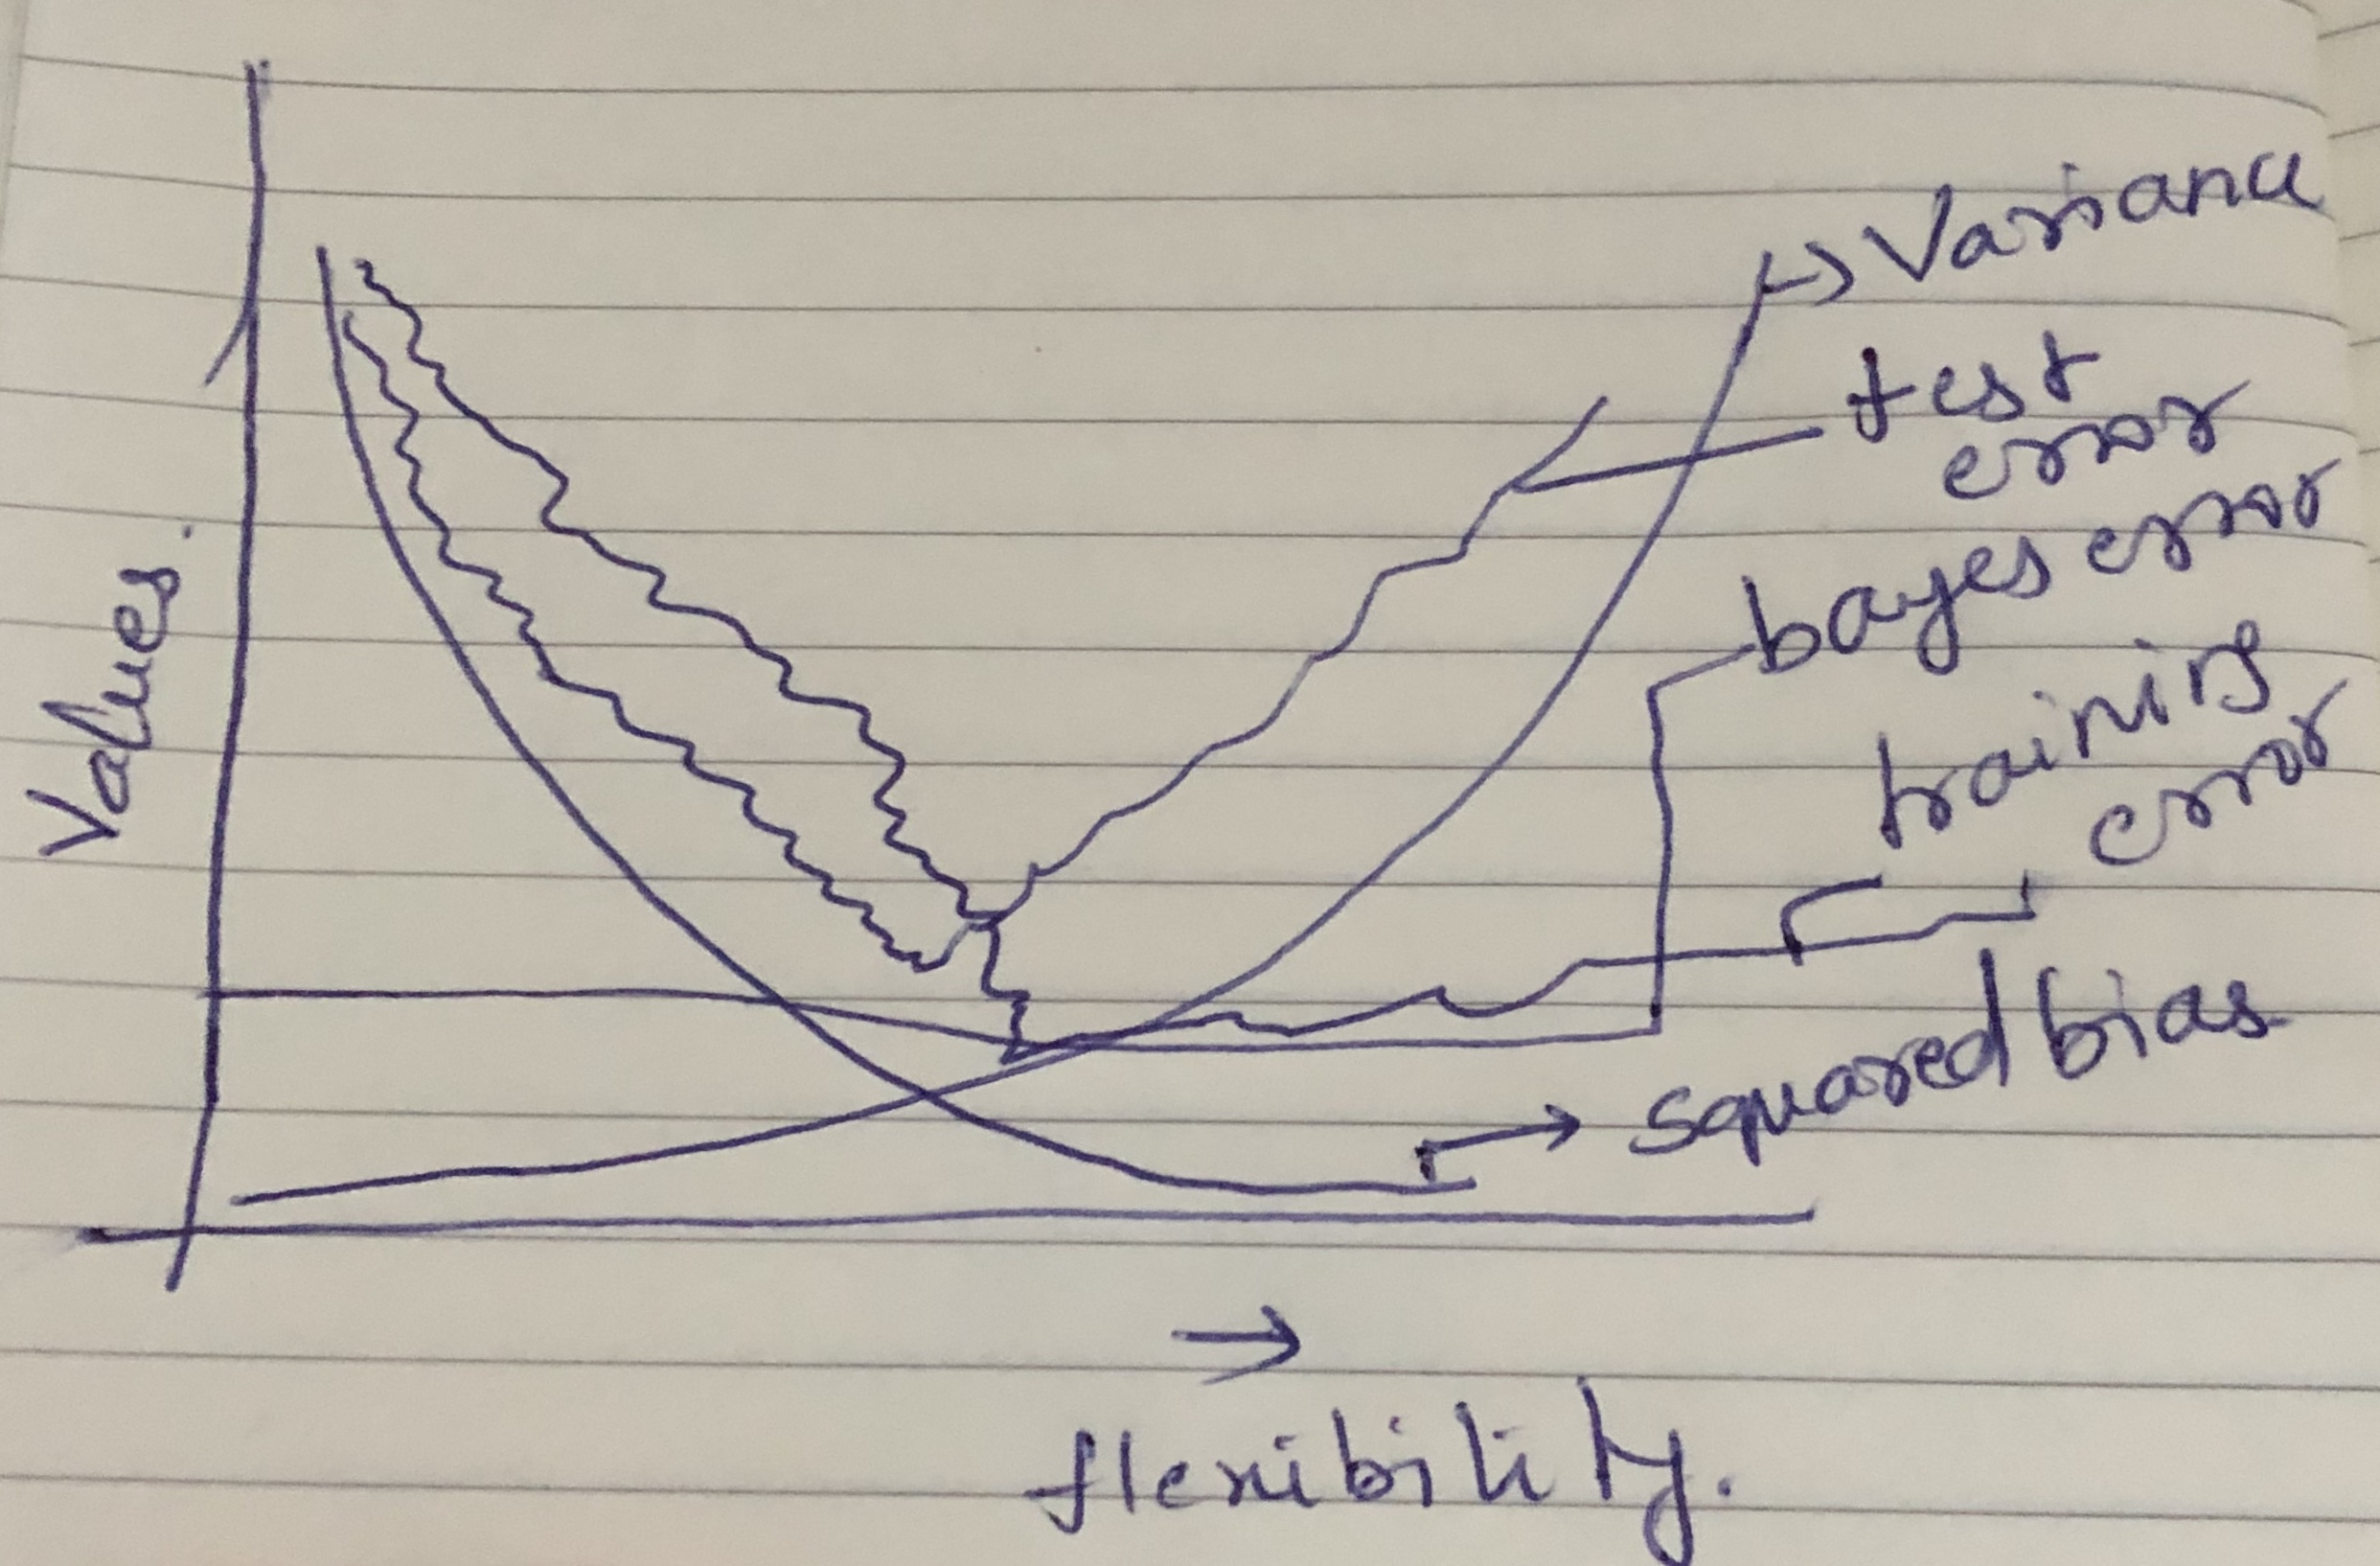 Variance
test
error
bayes error
training
error
squared bias
Values.
flexibility.